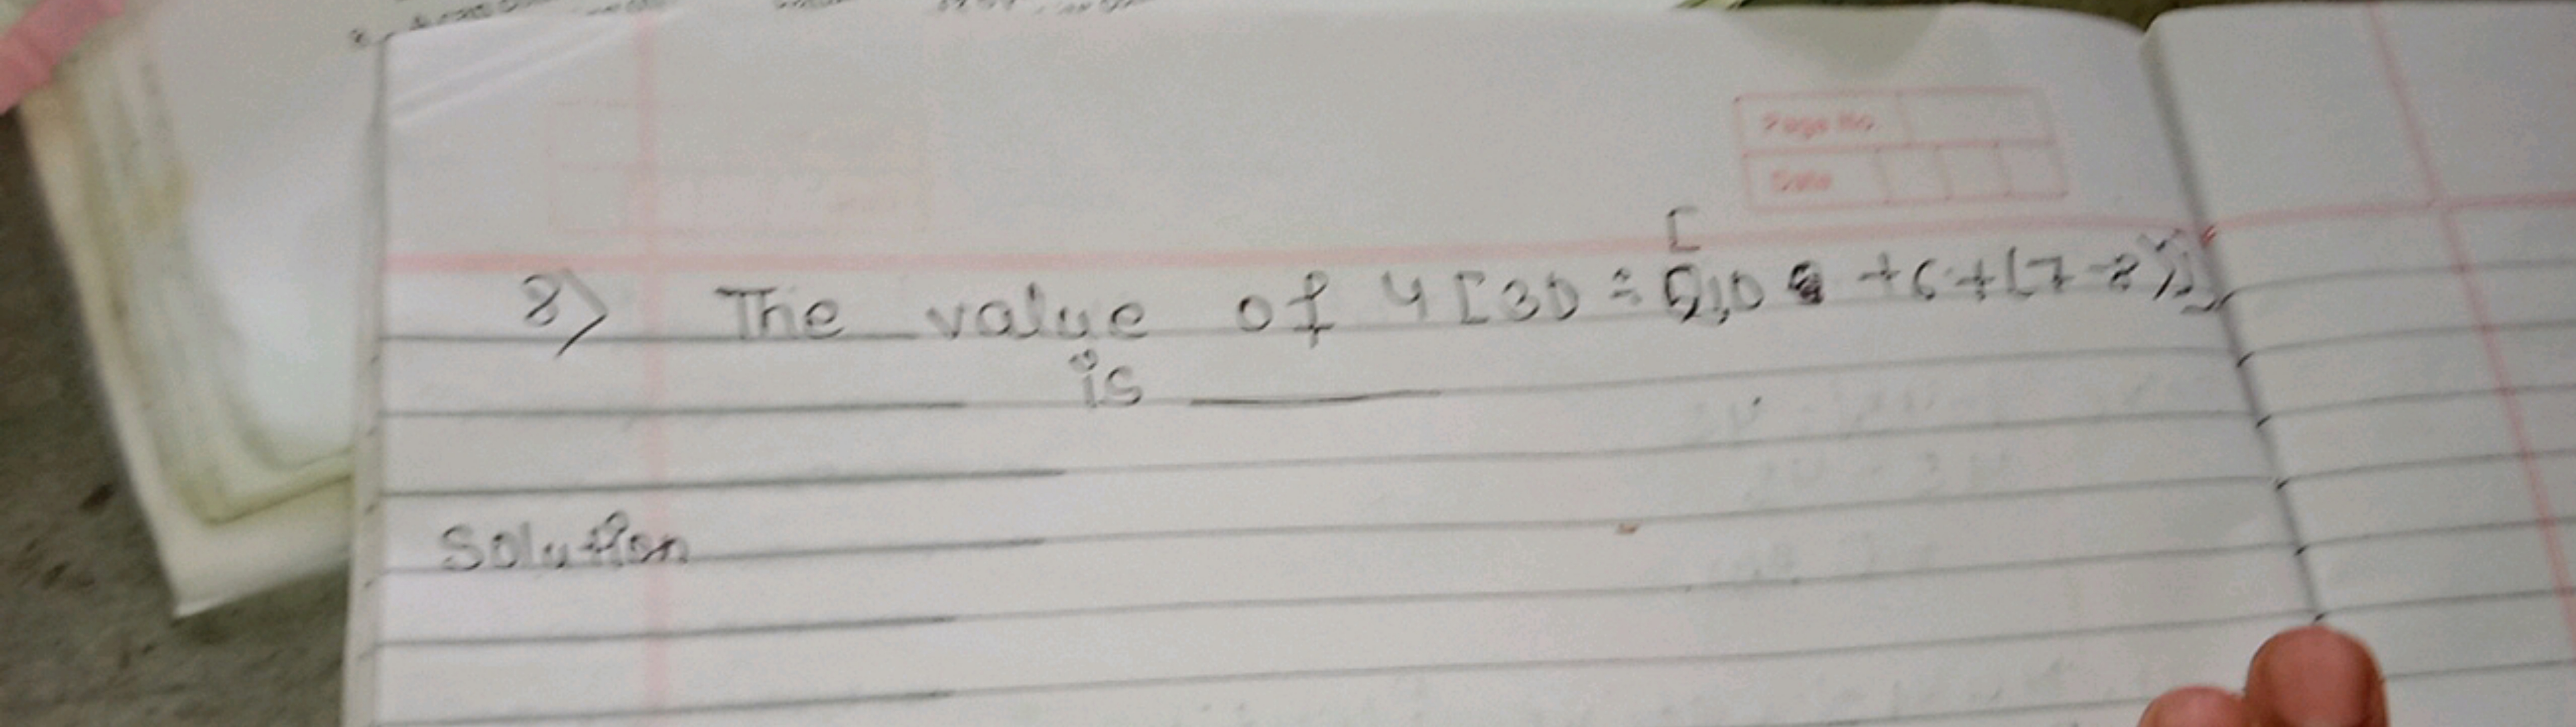 Page No
Date
8) The value of 4[30 ÷ [10 +6+(7-8)]]
is ______
Solution